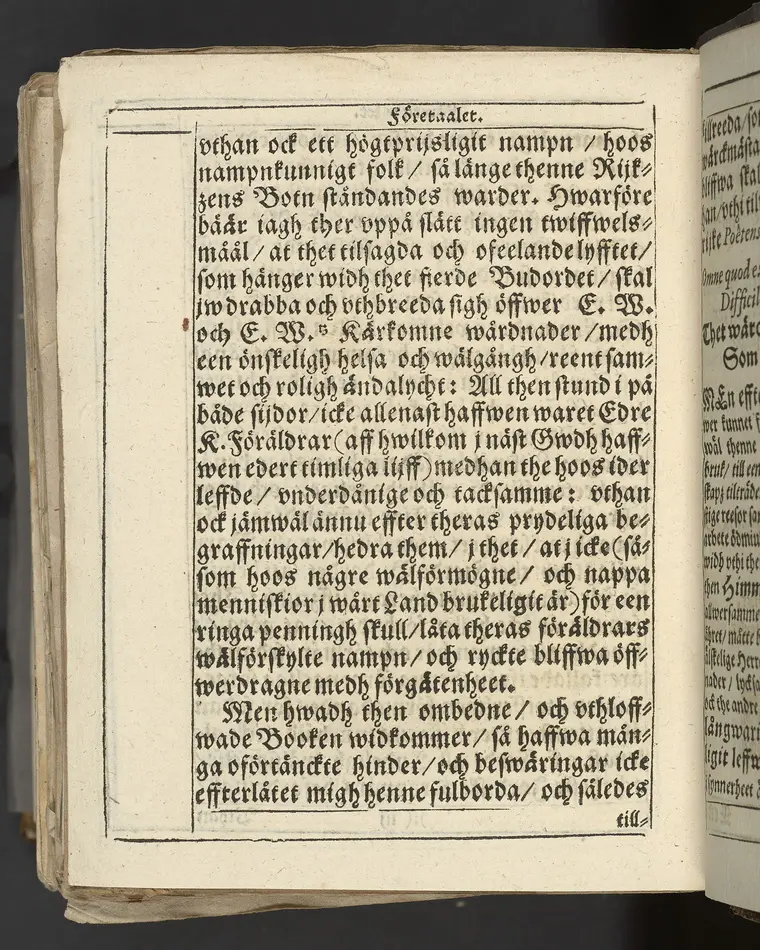 Företaalet.
vthan ock ett högtprijsligit nampn / hoos
nampnkunnigt folk / så länge thenne Rijk⸗
zens Botn ståndandes warder. Hwarföre
bäär iagh ther vppå slätt ingen twiffwels⸗
måål / at thet tilsagda och ofeelande lyfftet /
som hänger widh thet fierde Budordet / skal
jw drabba och vthbreeda sigh öffwer E. W.
och E. W.s Kärkomne wårdnader / medh
een önskeligh helsa och wälgångh / reent sam⸗
wet och roligh ändalycht: All then stund i på
både sijdor / icke allenast haffwen waret Edre
K. Föräldrar (aff hwilkom j näst Gwdh haff⸗
wen edert timliga lijff) medhan the hoos ider
leffde / vnderdånige och tacksamme: vthan
ock jämwäl ännu effter theras prydeliga be⸗
graffningar / hedra them / j thet / at j icke (så⸗
som hoos någre wälförmögne / och nappa
menniskior j wårt Land brukeligit är) för een
ringa penningh skull / låta theras föräldrars
wälförskylte nampn / och ryckte bliffwa öff⸗
werdragne medh förgätenheet.
Men hwadh then ombedne / och vthloff⸗
wade Booken widkommer / så haffwa mån⸗
ga oförtänckte hinder / och beswäringar icke
effterlåtet migh henne fulborda / och således
till⸗
illreeda / so
wärckmästa
bliffwa skal
han / vthi til
Poëtens
Omne quod e
Difficil
Thet wärc
Som
MEn effte
wäl thenne
bruk / till een
widh vthi the
then Himm
långwari
ligit leffw